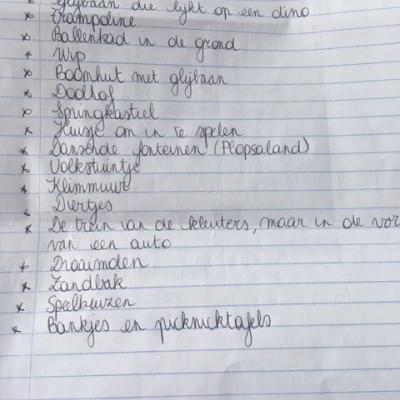 * Glijbaan die lijkt op een dino
* trampoline
* Ballenbad in de grond
* Wip
* Boomhut met glijbaan
* Doolhof
* Springkasteel
* Huisje om in te spelen
* Dansende fonteinen (Plopsaland)
* Volkstuintje
* Klimmuur
* Diertjes
* De trein van de kleuters, maar in de vor
van een auto
* Draaimolen
* Zandbak
* Speelhuizen
* Bankjes en picknicktafels